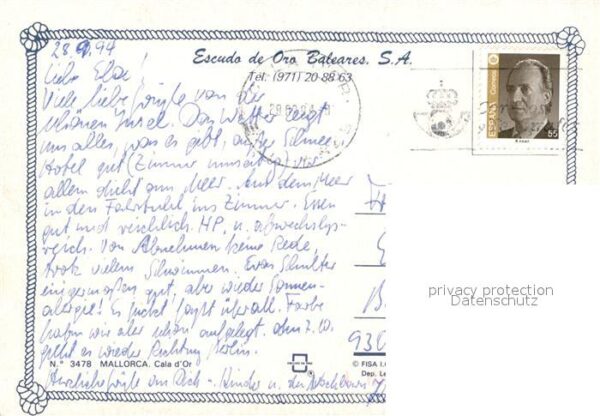 28.9.94
Escudo de Oro Baleares, S.A.
Tel. (971) 20 88 63
Liebe Else!
Viele liebe Grüße von der
schönen Insel. Das Wetter zeigt
uns alles, was es gibt, außer Schnee.
Hotel gut (Zimmer umsatteln) vor
allem dicht am Meer. Aus dem Meer
in den Fahrstuhl ins Zimmer. Essen
gut und reichlich. HP. u. abwechslgs-
reich. Von Abnehmen keine Rede,
trotz vielem Schwimmen. Evas Schulter
einigermaßen gut, aber wieder Sonnen-
allergie! Es juckt sanft überall. Farbe
haben wir aber schon aufgelegt. Am 2.10.
geht es wieder Richtung Berlin.
Herzliche Grüße an Dich - Kinder u. die Nachbarn
ESPAÑA
Correos
55
RCM-FNMT
930
privacy protection
Datenschutz
N.° 3478 MALLORCA. Cala d'Or
© FISA I.
Dep. Le